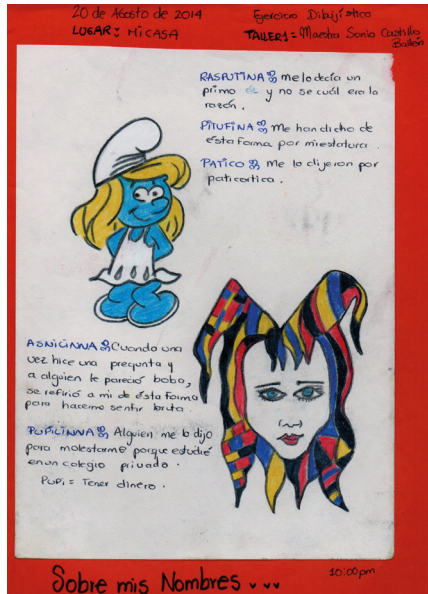 20 de Agosto de 2014
LUGAR: MI CASA
Ejercicio Dibujístico
TALLER 1 = Maestra Sonia Castillo
Ballén
RASPUTINA: me lo decía un
primo y no se cuál era la
razón.
PITUFINA: Me han dicho de
ésta forma por mi estatura.
PATICO: Me lo dijeron por
paticortica.
ASNILINNA: Cuando una
vez hice una pregunta y
a alguien le pareció bobo,
se refirió a mi de ésta forma
para hacerme sentir bruta.
PUPILINNA: Alguien me lo dijo
para molestarme porque estudié
en un colegio privado.
PUPI = Tener dinero.
10:00pm
Sobre mis Nombres...